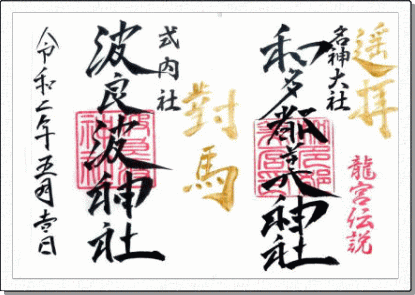 遥拝
龍宮伝説
名神大社
和多都美神社
對馬
式内社
波良波神社
令和二年五月吉日